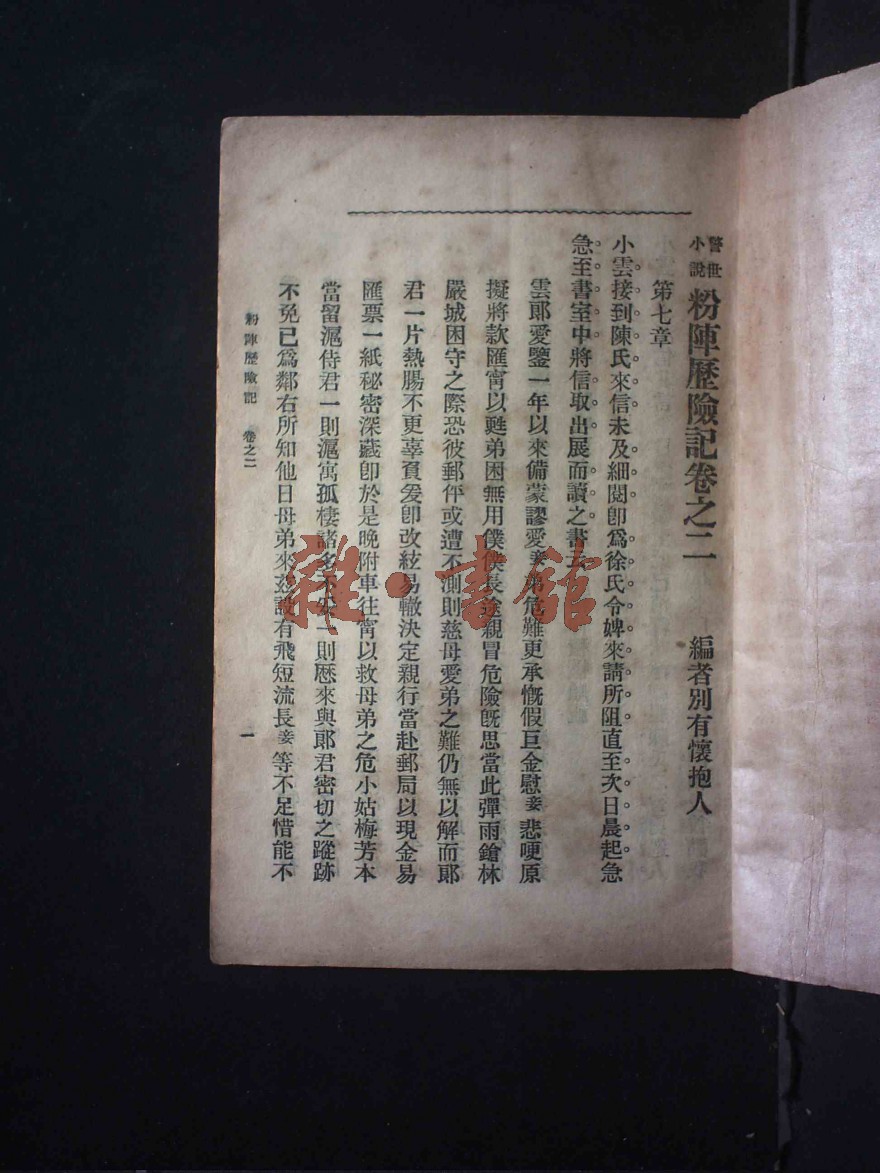 警世小說 粉陣歷險記卷之二 編者別有懷抱人
第七章
小雲接到陳氏來信未及細閱卽爲徐氏令婢來請所阻直至次日晨起急
急至書室中將信取出展而讀之書云
雲郎愛鑒一年以來備蒙謬愛妾弟危難更承慨假巨金慰妾悲哽原
擬將款匯甯以甦弟困無用僕僕長途親冒危險旣思當此彈雨鎗林
嚴城困守之際恐彼郵伻或遭不測則慈母愛弟之難仍無以解而郎
君一片熱腸不更辜負爰卽改絃易轍決定親行當赴郵局以現金易
匯票一紙秘密深藏卽於是晚附車往甯以救母弟之危小姑梅芳本
當留滬侍君一則滬寓孤棲諸多不安一則歷來與郎君密切之蹤跡
不免已爲鄰右所知他日母弟來茲設有飛短流長妾等不足惜能不
粉陣歷險記 卷之二
一
雜·書館